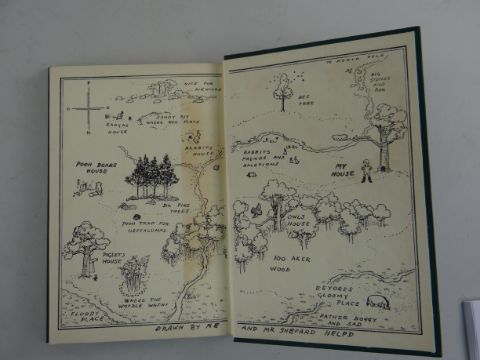 NICE FOR
PICNICKS
SANDY PIT
WHERE ROO PLAYS
KANGAS
HOUSE
RABBITS
HOUSE
POOH BEARS
HOUSE
BIG
TREES
POOH TRAP FOR
HEFFALUMPS
PIGLETS
HOUSE
WHERE THE
WOOZLE WASNT
FLOODY
PLACE
DRAWN BY ME
TO NORTH POLE
BIG
STONES
AND
ROX
BEE
TREE
RABBITS
FRENDS AND
RALETIONS
MY
HOUSE
OWLS
HOUSE
100 AKER
WOOD
EEYORES
GLOOMY
PLACE
RATHER BOGGY
AND SAD
AND MR SHEPARD HELPD